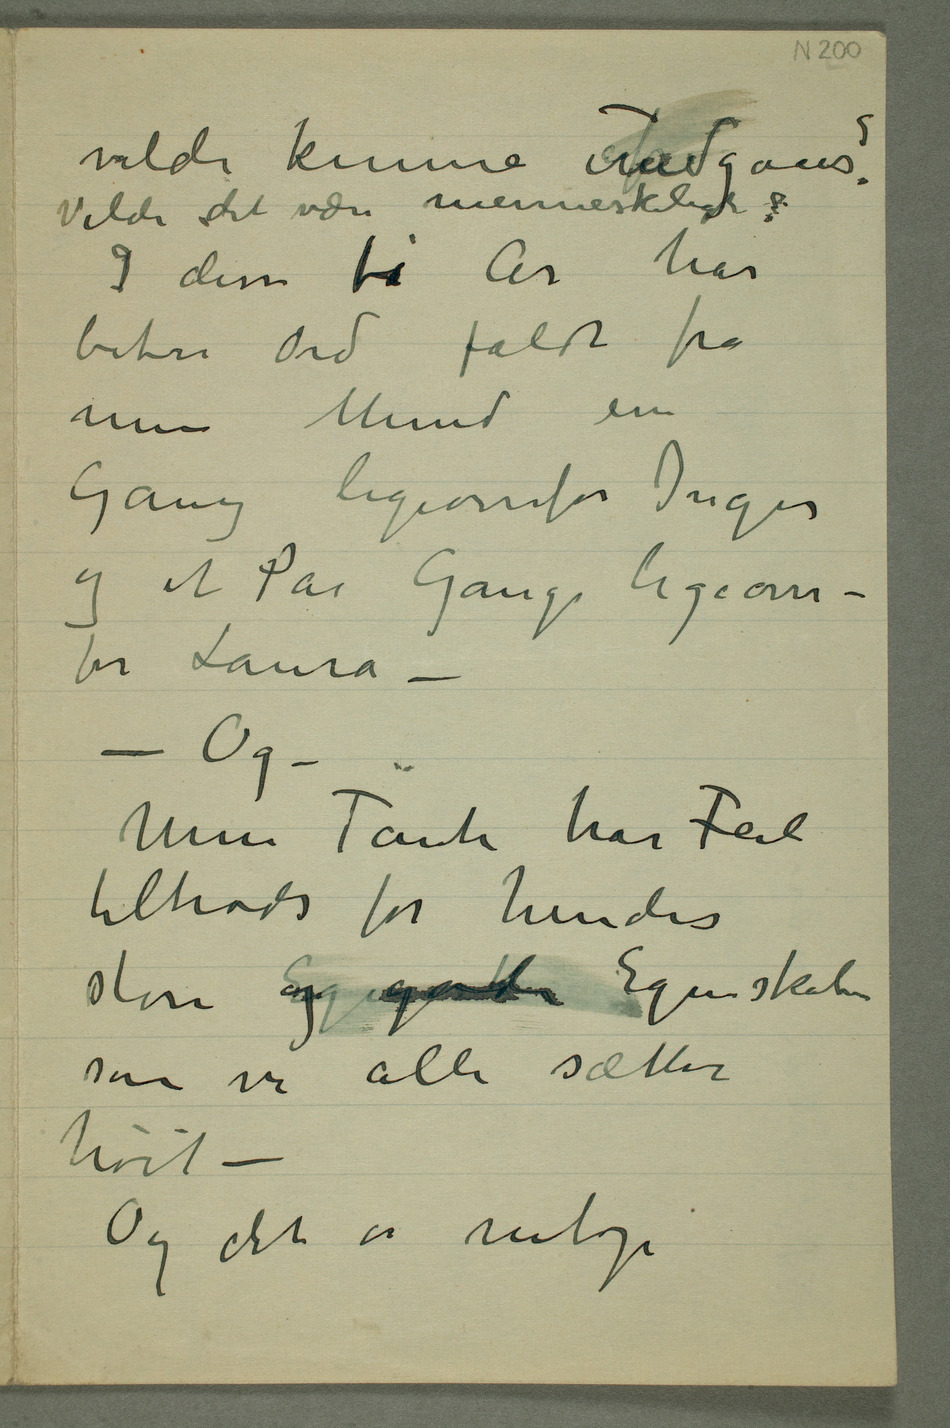 N 200
vilde kunne undgaaes?
Vilde det være menneskeligt?
I disse ti Aar har
bitre Ord faldt fra
min Mund en
Gang ligeoverfor Inger
og et Par Gange ligeover–
for Laura –
– Og –
Min Tante har Feil
tiltrods for hendes
store Egenskaber
som vi alle sætter
höit –
Og det er netop